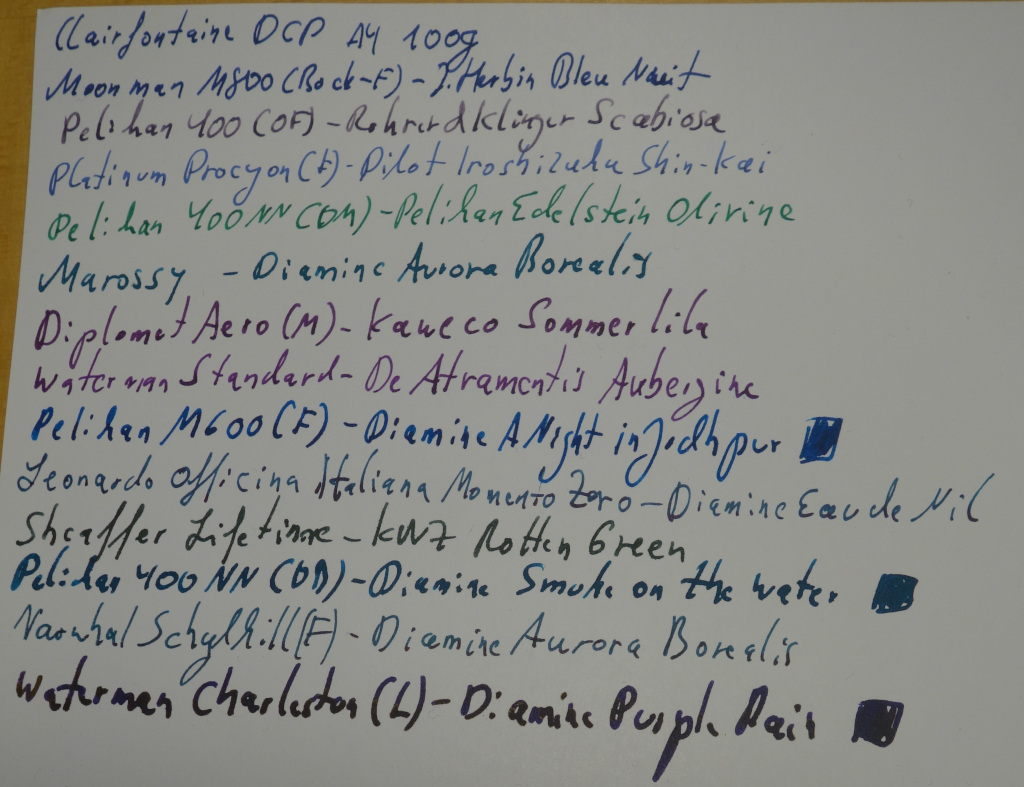 Clairfontaine DCP A4 100g
Moonman M800 (Bock-F) - J. Herbin Bleu Nuit
Pelikan 400 (OF) - Rohrer d Klinger Scabiosa
Platinum Procyon (F) - Pilot Iroshizuku Shin-Kai
Pelikan 400NN (OM) - Pelikan Edelstein Olivine
Marossy - Diamine Aurora Borealis
Diplomat Aero (M) - Kaweco Sommerlila
Waterman Standard - De Atramentis Aubergine
Pelikan M600 (F) - Diamine A Night in Jodhpur
Leonardo Officina Italiana Momento Zero - Diamine Eau de Nil
Sheaffer Lifetime - KWZ Rotten Green
Pelikan 400NN (OB) - Diamine Smoke on the water
Narwhal Schylkill (F) - Diamine Aurora Borealis
Waterman Charleston (L) - Diamine Purple Rain